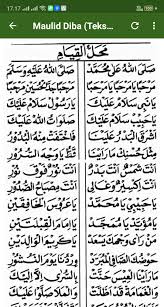 17.17
57
Maulid Diba (Teks...
محل القيام
صلى الله على محمد صلى الله عليه وسلم
مرحبا يا مرحبا يا مرحبا مرحبا جد الحسين مرحبا
يا نبي سلام عليك يا رسول سلام عليك
يا حبيب سلام عليك صلوات الله عليك
أشرق البدر علينا فاختفت منه البدور
مثل حسنك ما رأينا قط يا وجه السرور
أنت شمس أنت بدر أنت نور فوق نور
أنت إكسير وغالي أنت مصباح الصدور
يا حبيبي يا محمد يا عروس الخافقين
يا مؤيد يا ممجد يا إمام القبلتين
من رأى وجهك يسعد يا كريم الوالدين
حوضك الصافي المبرد وردنا يوم النشور
ما رأينا العيس حنت بالسرى إلا إليك